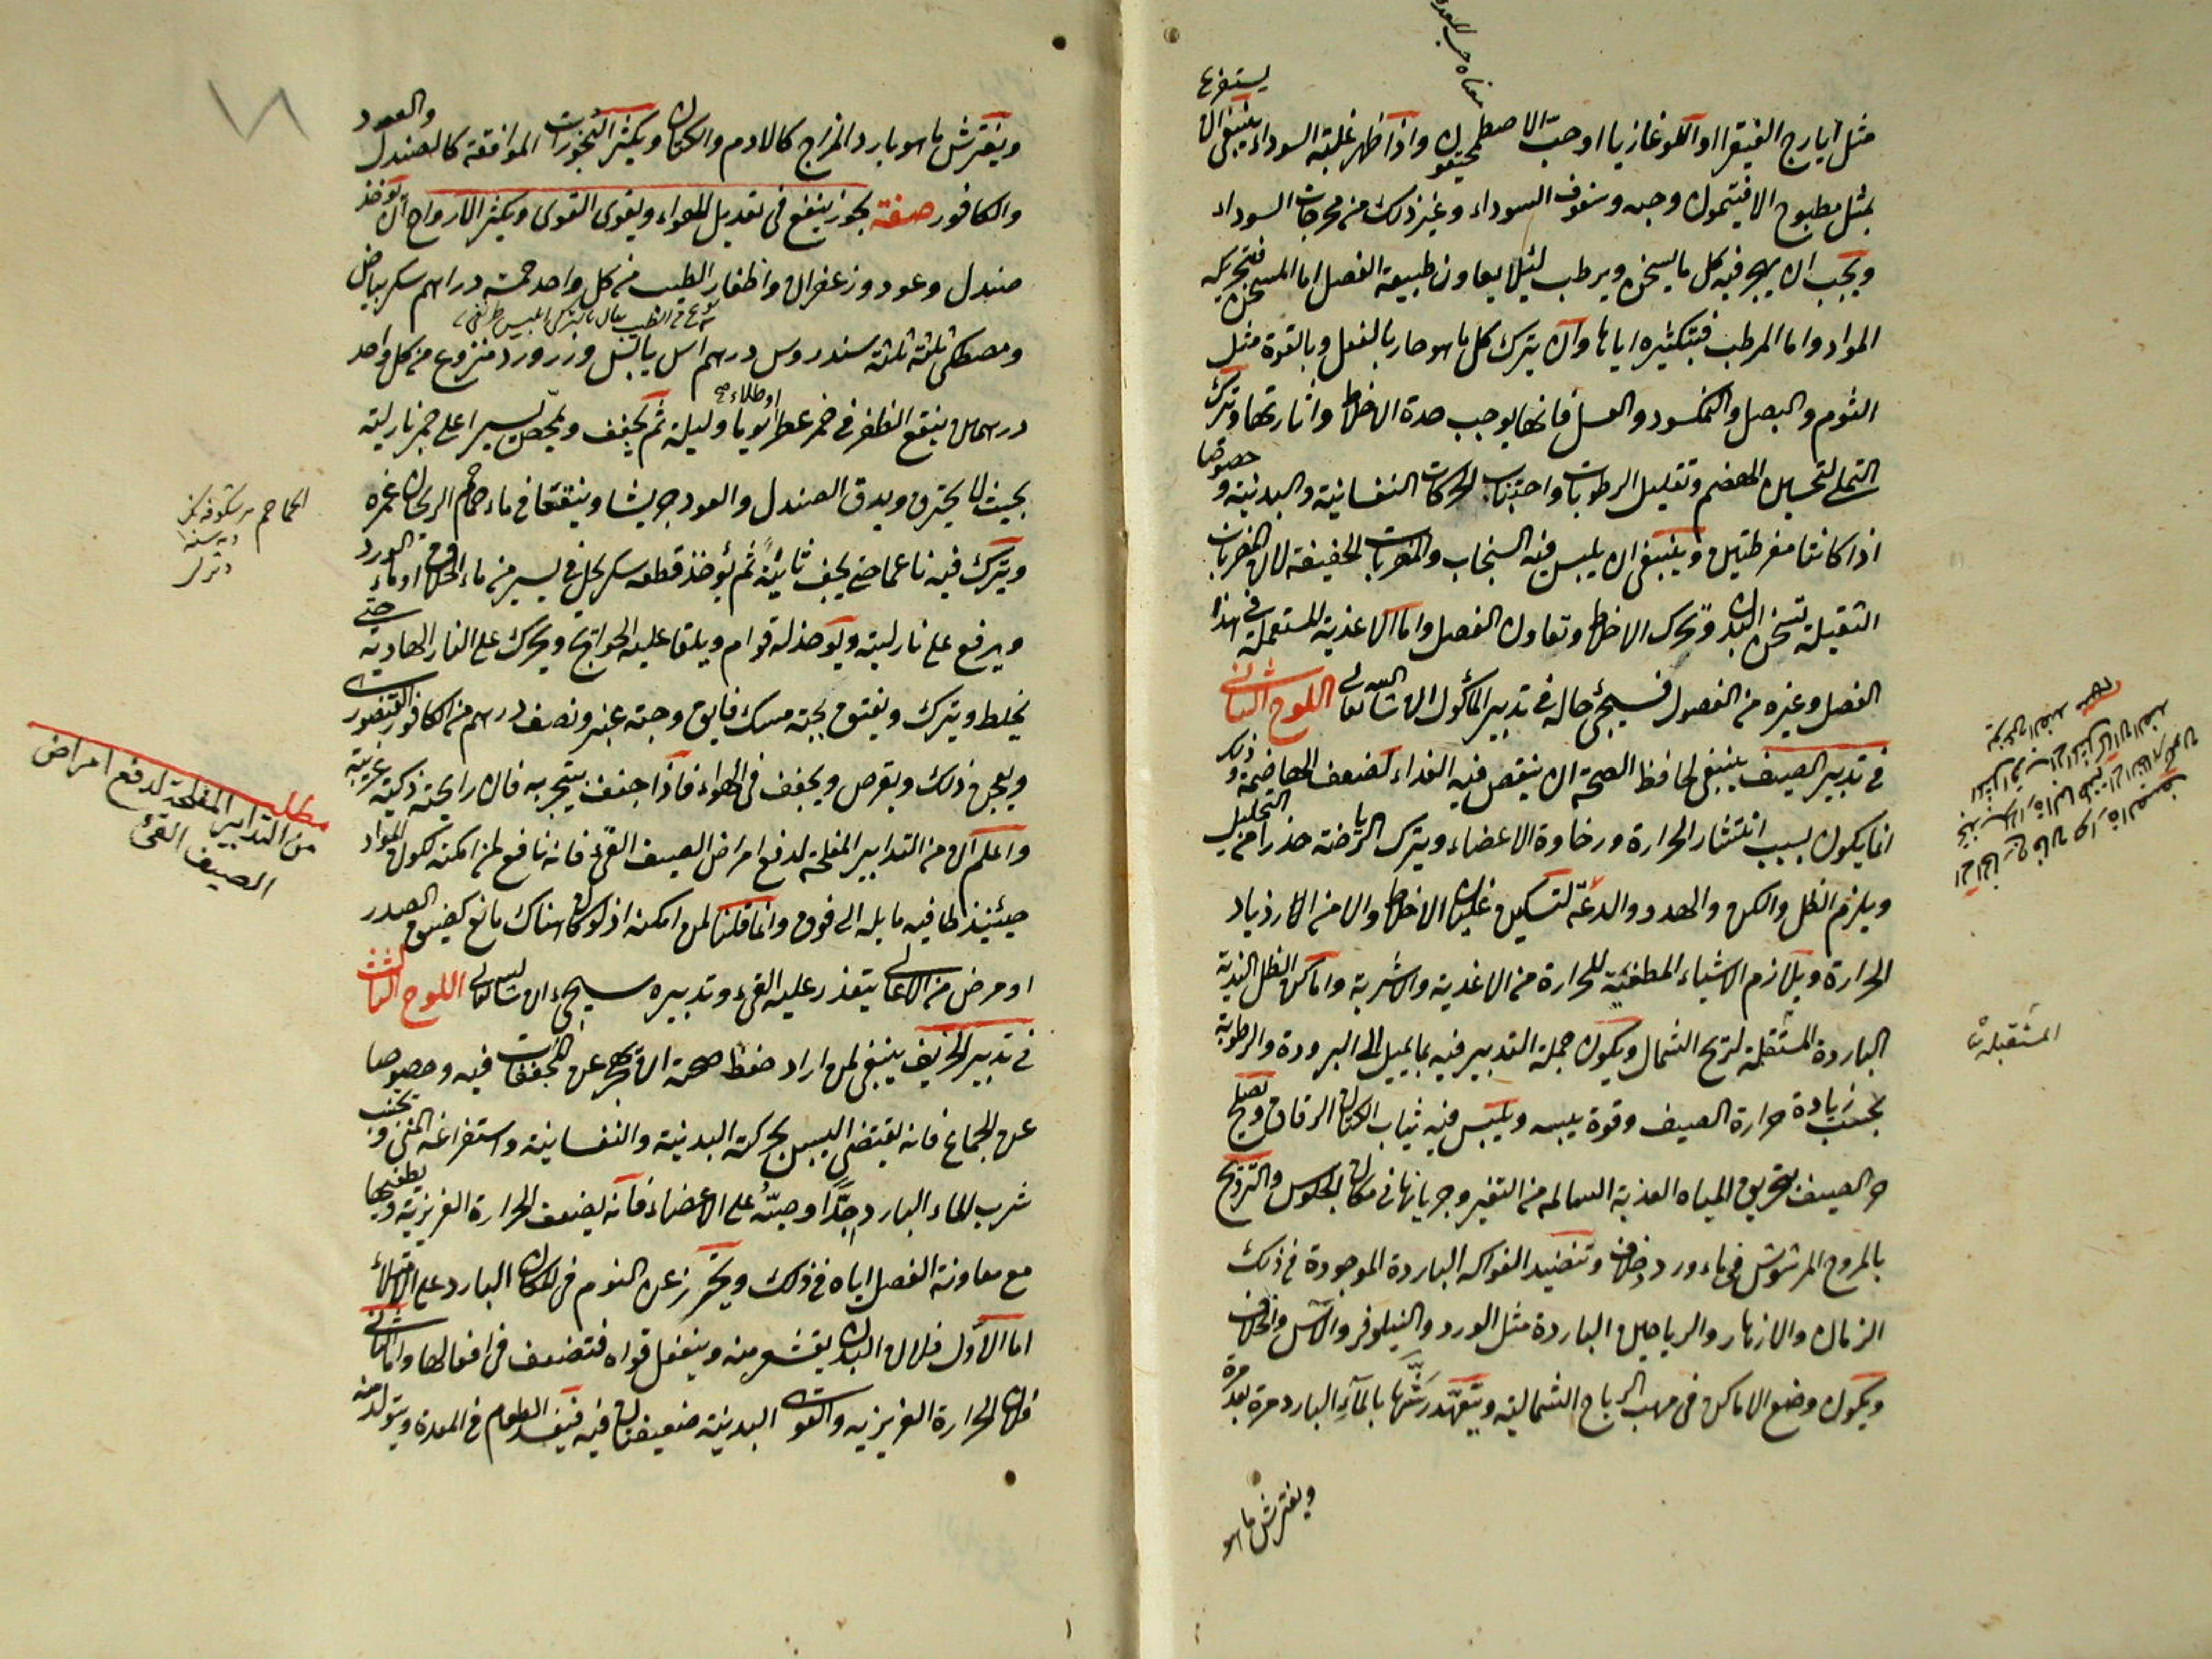 مثل ايارج الفيقرا او اللوغازيا او حب الاصطمحيقون واذا ظهر غلبة السوداء ينبغي ان يستفرغ
بمثل مطبوخ الافتيمون وحبه وسفوف السوداء وغير ذلك من مخرجات السوداء
ويجب ان يهجر فيه كل ما يسخن ويرطب لئلا يعاون طبيعة الفصل اما المسخن فتحريكه
المواد واما المرطب فبتكثيره اياها وان يترك كل ما هو حار بالفعل وبالقوة مثل
الثوم والبصل والنمكسود والعسل فانها يوجب حدة الاخلاط واثارتها وترك
التملي لتحسين الهضم وتقليل الرطوبات واجتناب الحركات النفسانية والبدنية وخصوصا
اذا كانتا مفرطتين وينبغي ان يلبس فيه السنجاب والمضربات الخفيفة لان المضربات
الثقيلة تسخن البدن وتحرك الاخلاط وتعاون الفصل واما الاغذية المستعملة في هذا
الفصل وغيره من الفصول فسيجئ حاله في تدبير المأكول ان شا الله تعالى اللوح الثاني
في تدبير الصيف ينبغي لحافظ الصحة ان ينقص فيه الغذاء لضعف الهاضمة وذلك
انما يكون بسبب انتشار الحرارة ورخاوة الاعضاء ويترك الرياضة حذرا من التحليل
ويلزم الظل والكن والهدو والدعة لتسكين غليان الاخلاط والامن الازدياد
الحرارة ويلازم الاشياء المطفئة للحرارة من الاغذية والاشربة واماكن الظل الندية
الباردة المستقبلة لريح الشمال ويكون جملة التدبير فيه بما يميل الى البرودة والرطوبة
بحسب زيادة حرارة الصيف وقوة يبسه ويلبس فيه ثياب الكتان الرقاق ويصلح
حر الصيف بتخريق المياه العذبة السالمة من التغير وجريانها في مكان الجلوس والترويح
بالمروح المرشوش في ماء ورد وخلاف وتنضيد الفواكه الباردة الموجودة في ذلك
الزمان والازهار والرياحين الباردة مثل الورد والنيلوفر والآس والخلاف
ويكون وضع الاماكن في مهب الرياح الشمالية ويتعهد رشها بالمآء البارد مرة بعد مرة
ويفترش ما هو
المستقبلة
ويفترش ما هو بارد المزاج كالادم والكتان ويكثر البخورات الموافقة كالصندل والعود
والكافور صفة بخور ينفع في تعديل الهواء ويقوى القوى ويكثر الارواح ان يؤخذ
صندل وعود وزعفران واظفار الطيب من كل واحد خمسة دراهم سكر بياض
ومصطكى ثلثة ثلثة سندروس درهم اس يابس وزر ورد منزوع من كل واحد
درهمان ينقع الظفر في خمر عطر او طلاء يوما وليلة ثم يجفف ويحمص يسيرا على جمر نار لينة
بحيث لا يحترق ويدق الصندل والعود جريشا وينقعا في ماء حماحم الريحان غمره
ويترك فيه ناعما حتى يجف ثانية ثم يؤخذ قطعة سكر يحل في يسير من ماء الخلاف او ماء الورد
ويرفع على نار لينة ويؤخذ له قوام ويلقا عليه الحوائج ويحرك على النار الهادية حتى
يخلط ويترك ويفتق بحبة مسك فايق وحبة عنبر ونصف درهم من الكافور القنصورى
ويعجن ذلك ويقرص ويجفف في الهواء فاذا جفف يتبخر به فان رايحته ذكية غريبة
واعلم ان من التدابير المفلحة لدفع امراض الصيف القئ فانه نافع لمن امكنه لكون المواد
حينئذ طافية مايله الى فوق وانما قلنا لمن امكنه اذ لو كان هناك مانع كضيق الصدر
او مرض من الاعالي يتعذر عليه القئ وتدبيره سيجئ ان شا الله تعالى اللوح الثالث
في تدبير الخريف ينبغي لمن اراد حفظ صحته ان يهجر عن المجففات فيه وخصوصا
عن الجماع فانه يقتضي اليبس بحركته البدنية والنفسانية واستفراغه المنى ويجنب
شرب الماء البارد جدا وصبه على الاعضاء فانه يضعف الحرارة الغريزية ويطفيها
مع معاونة الفصل اياه في ذلك ويحترز عن النوم في المكان البارد على الامتلاء
اما الاول فلان البدن يقشعر منه وينفعل قواه فتضعف في افعالها واما الثاني
فلان الحرارة الغريزية والقوى البدنية ضعيفتان فيه فيفسد الطعام في المعدة ويتولد منه
مطلب
من التدابير المفلحة لدفع امراض
الصيف القئ